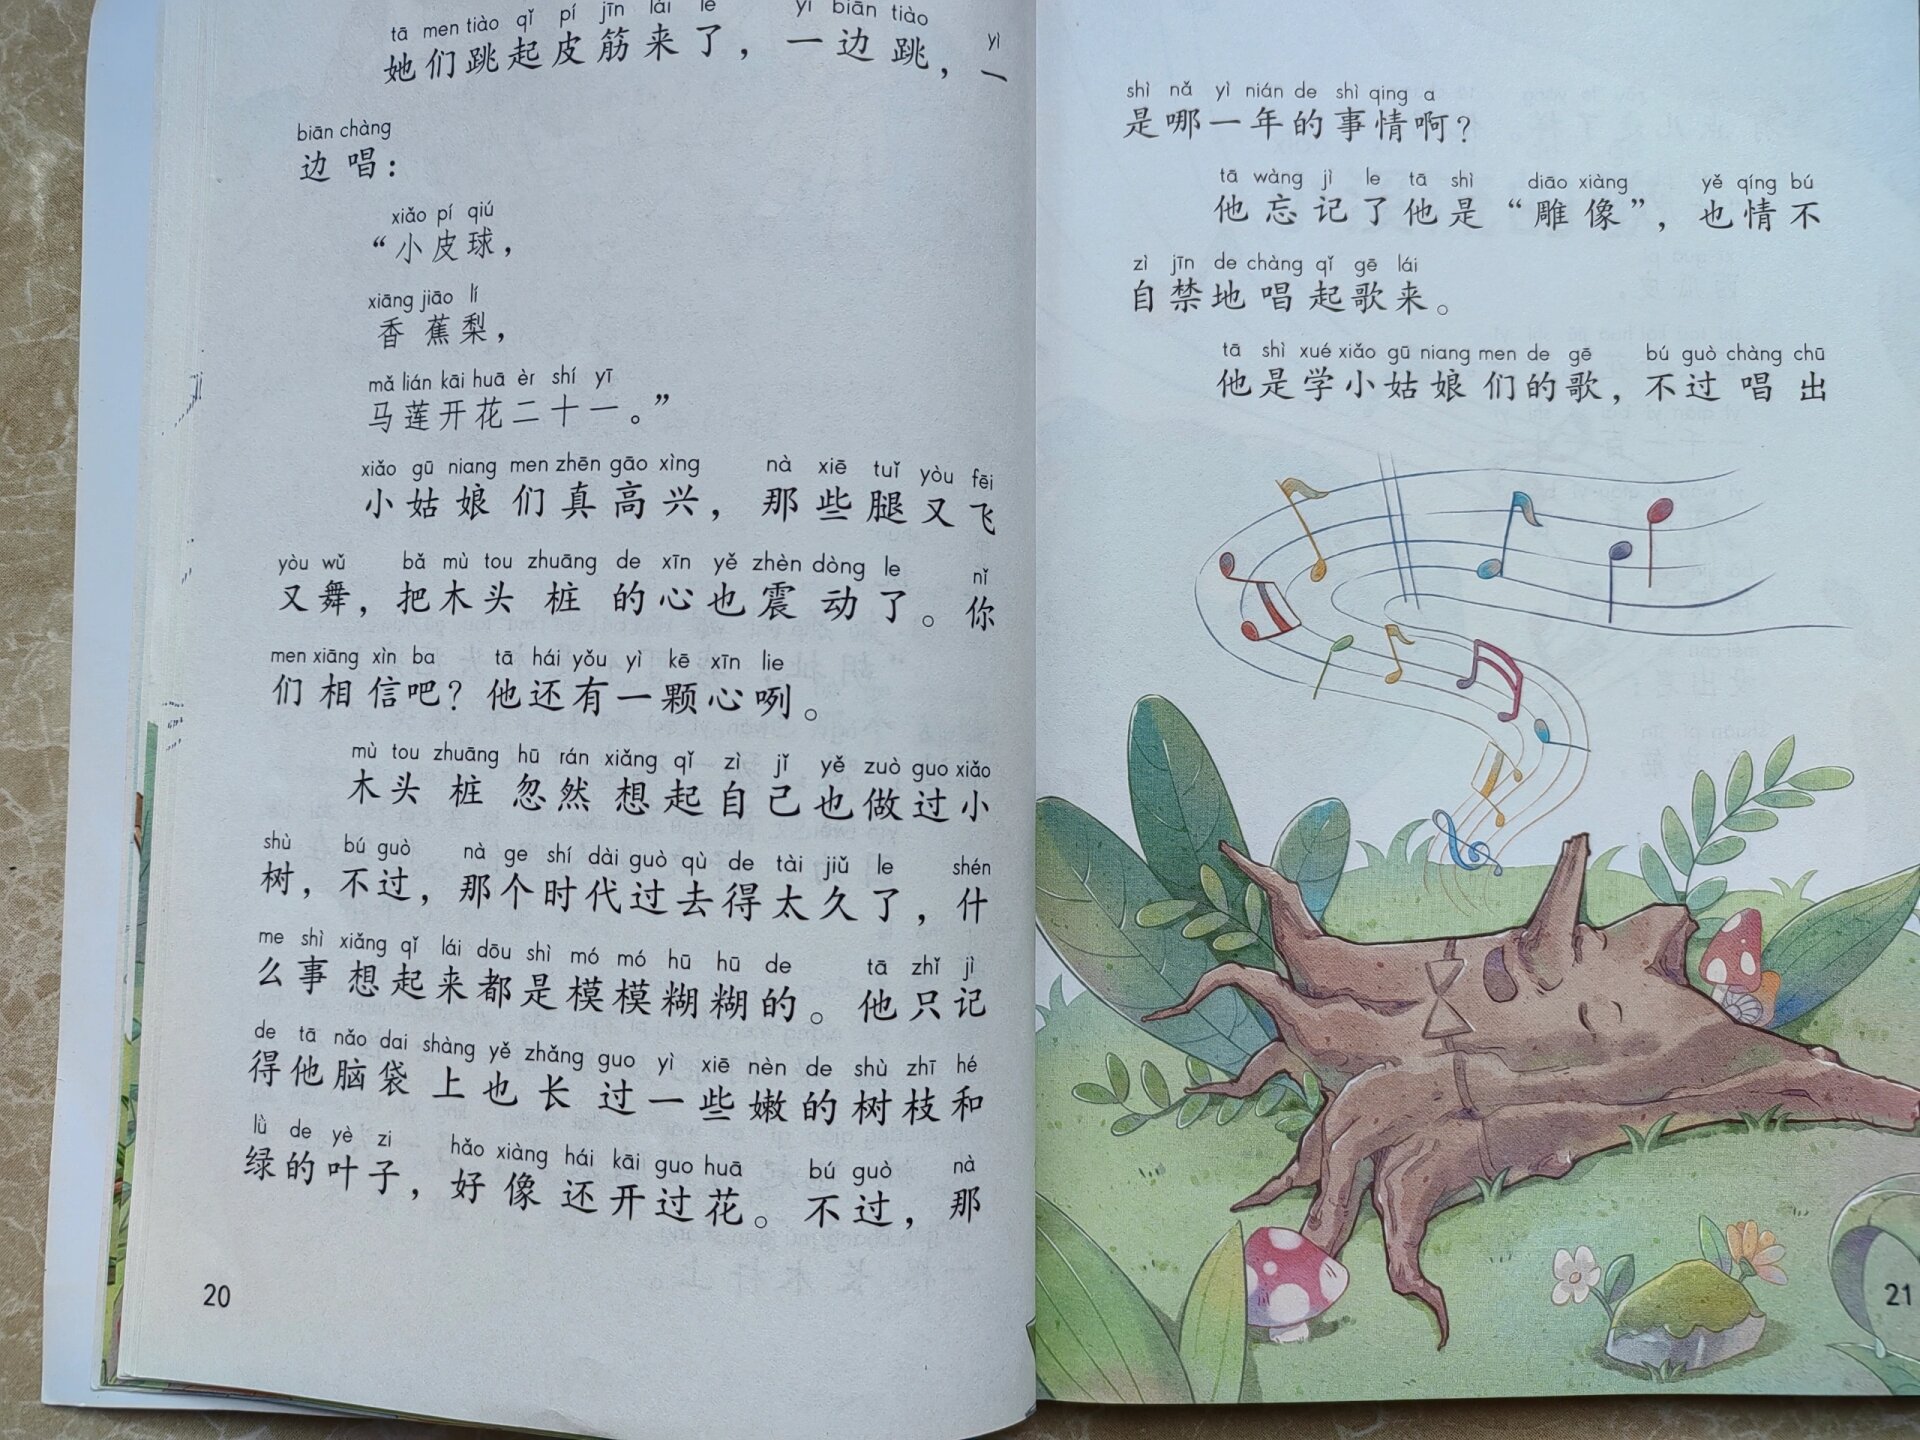 tā men tiào qǐ pí jīn lái le yì biān tiào yì
她们跳起皮筋来了，一边跳，一
biān chàng
边唱：
xiǎo pí qiú
“小皮球，
xiāng jiāo lí
香蕉梨，
mǎ lián kāi huā èr shí yī
马莲开花二十一。”
xiǎo gū niang men zhēn gāo xìng nà xiē tuǐ yòu fēi
小姑娘们真高兴，那些腿又飞
yòu wǔ bǎ mù tou zhuāng de xīn yě zhèn dòng le nǐ
又舞，把木头桩的心也震动了。你
men xiāng xìn ba tā hái yǒu yì kē xīn lie
们相信吧？他还有一颗心咧。
mù tou zhuāng hū rán xiǎng qǐ zì jǐ yě zuò guo xiǎo
木头桩忽然想起自己也做过小
shù bú guò nà ge shí dài guò qù de tài jiǔ le shén
树，不过，那个时代过去得太久了，什
me shì xiǎng qǐ lái dōu shì mó mó hū hū de tā zhǐ jì
么事想起来都是模模糊糊的。他只记
de tā nǎo dai shàng yě zhǎng guo yì xiē nèn de shù zhī hé
得他脑袋上也长过一些嫩的树枝和
lǜ de yè zi hǎo xiàng hái kāi guo huā bú guò nà
绿的叶子，好像还开过花。不过，那
20
shì nǎ yì nián de shì qing a
是哪一年的事情啊？
tā wàng jì le tā shì diāo xiàng yě qíng bú
他忘记了他是“雕像”，也情不
zì jīn de chàng qǐ gē lái
自禁地唱起歌来。
tā shì xué xiǎo gū niang men de gē bú guò chàng chū
他是学小姑娘们的歌，不过唱出
21